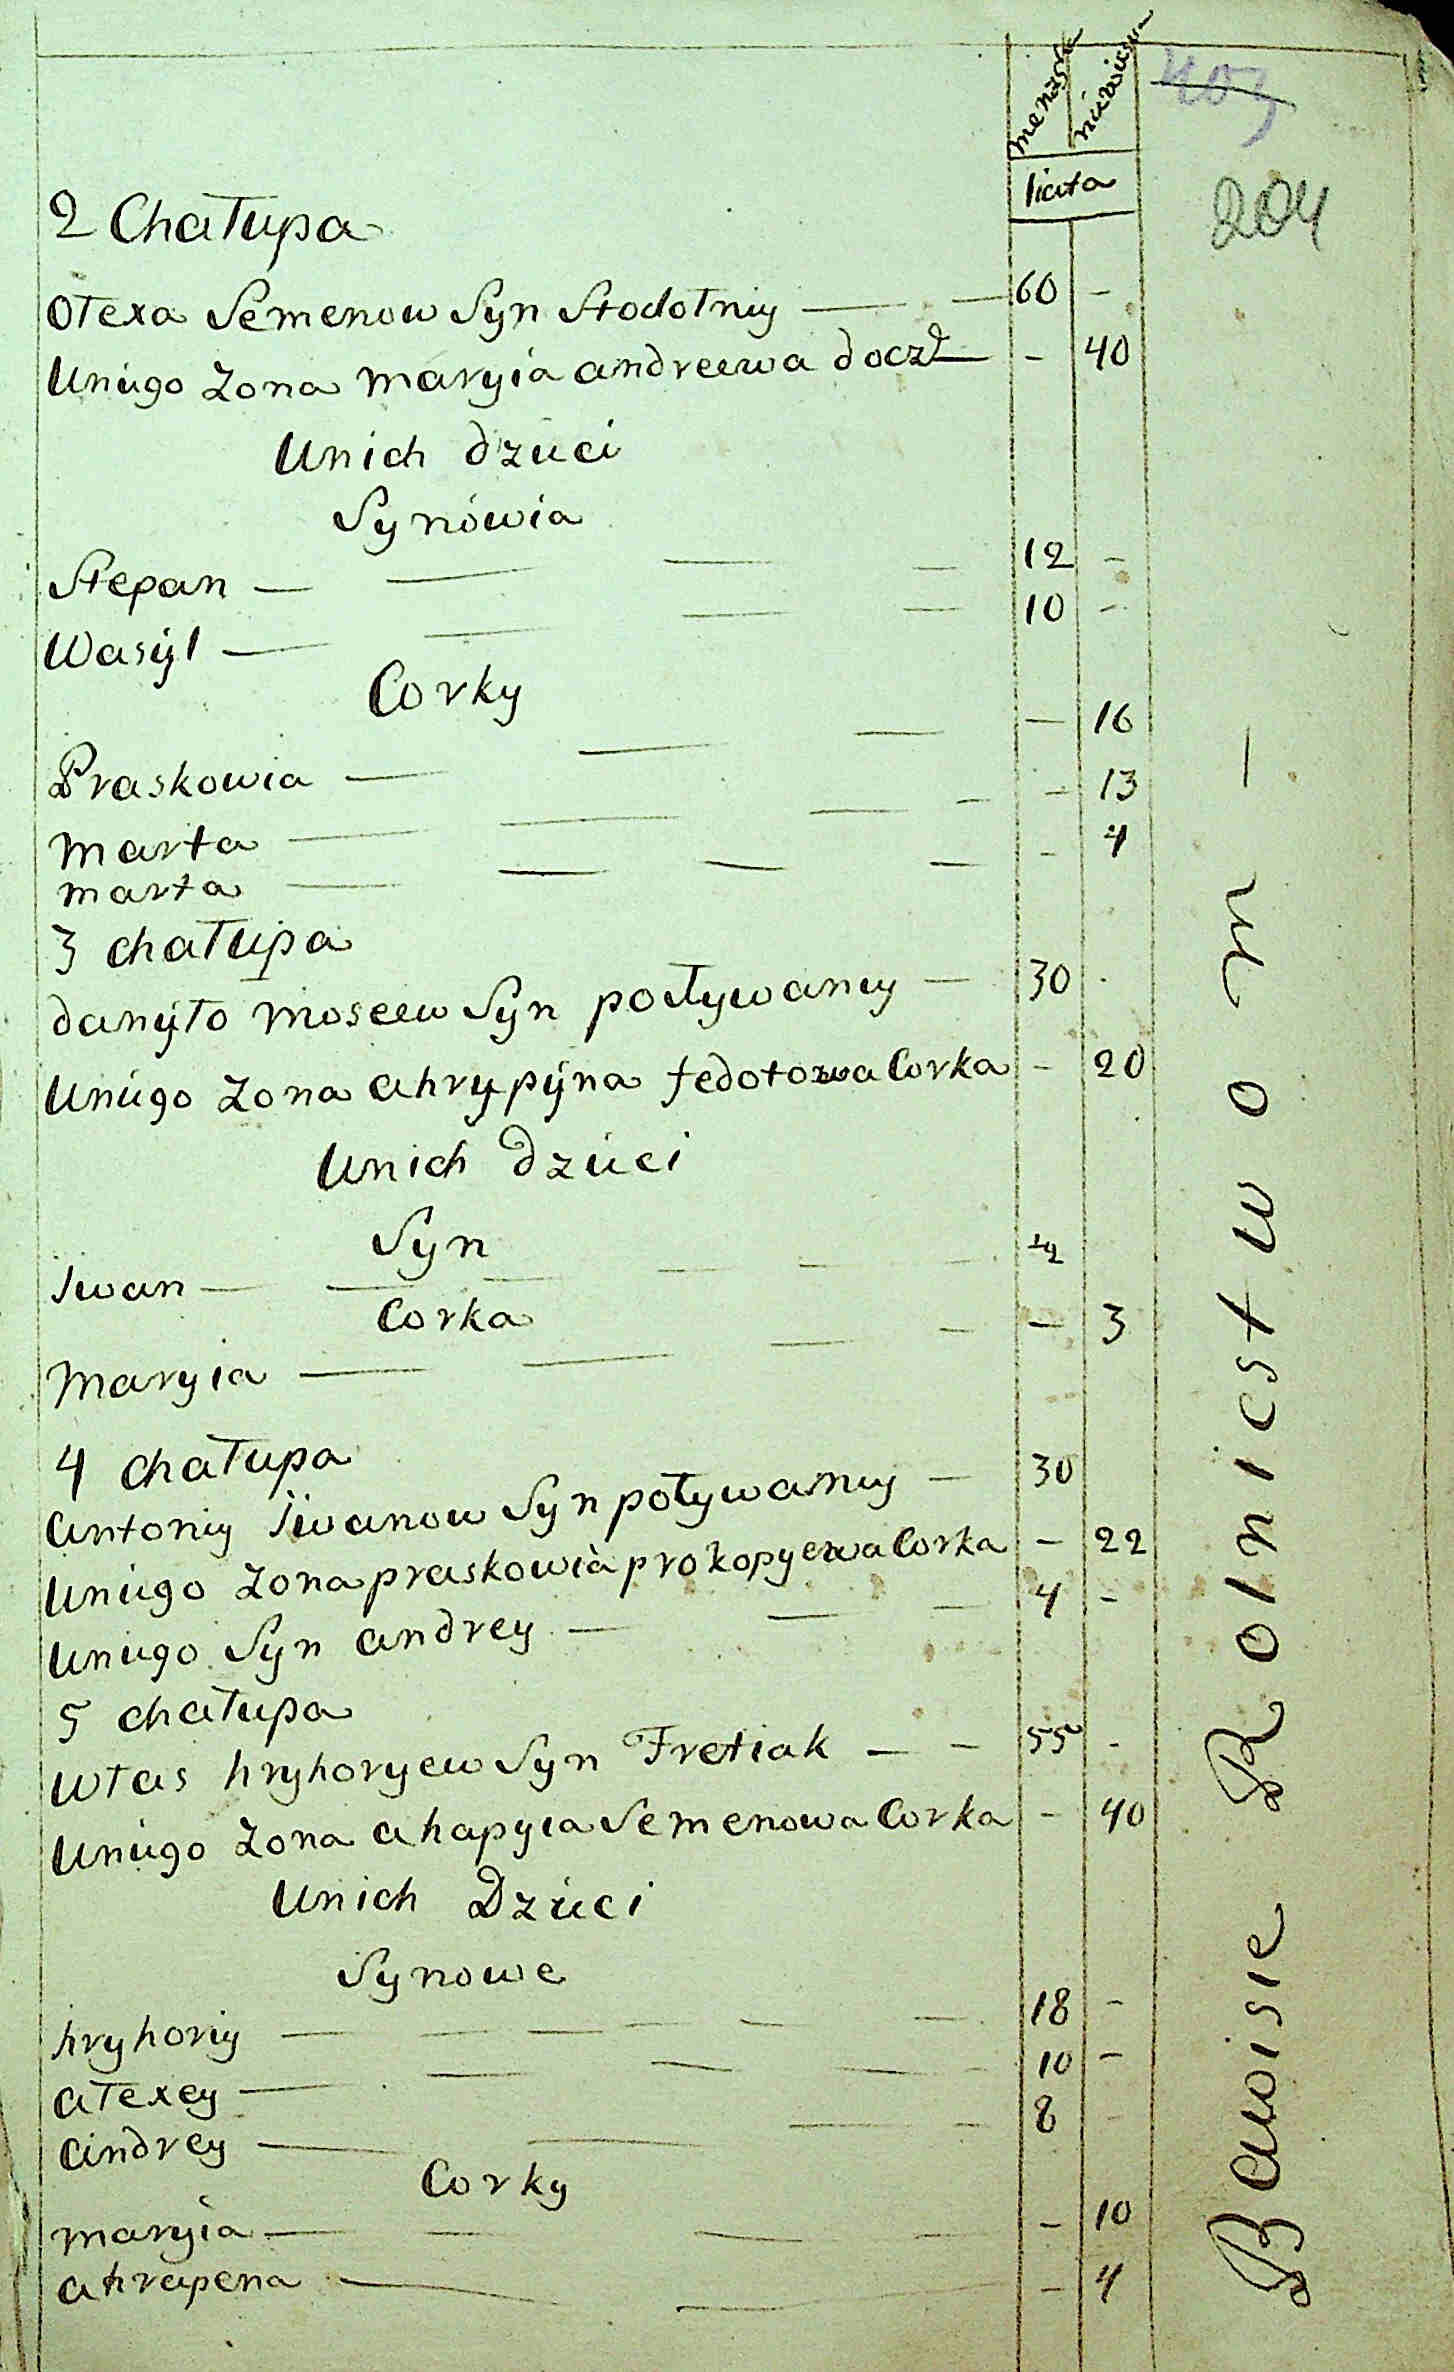 403
204
licta
2 Chałupa
Ołexa Semenow Syn Stodolniy — — 60 -
Uniego Zona maryia andreewa docz — - 40
Unich dzieci
Synówia
Stepan — — — — 12 -
Wasÿl — — — — 10 -
Corky
Praskowia — — — — 16
marta — — — — - 13
marta — — — — - 4
3 chałupa
danÿło moseew Syn poływaniy — 30 -
Uniego Zona ahrypÿna fedotowa Corka - 20
Unich dzieci
Syn
iwan — — — — — —
Corka
maryia — — — — — 3
4 chałupa
antoniy iwanow Syn poływaniy — 30
Uniego Zona praskowia prokopyewa Corka - 22
Uniego Syn andrey — — — 4 -
5 chałupa
włas hryhoryew Syn Tretiak — — 55 -
Uniego Zona ahapyia Semenowa Corka - 40
Unich Dzieci
Synowe
hryhoriy — — — — — — 18 -
ałexey — — — — — 10 -
andrey — — — — 8 -
Corky
maryia — — — — - 10
ahrapena — — - 4
Bawisie Rolnicstwom —